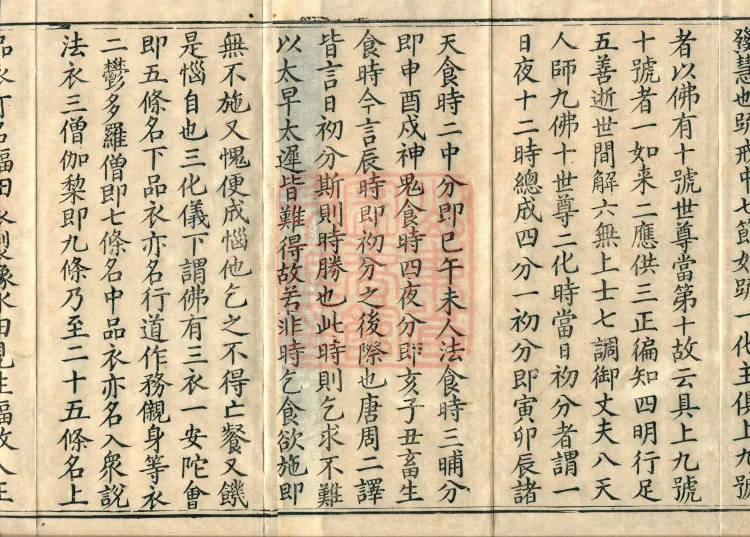 發慧也號戒中七節如號一化主俱上九號
者以佛有十號世尊當第十故云具上九號
十號者一如来二應供三正徧知四明行足
五善逝世間解六無上士七調御丈夫八天
人師九佛十世尊二化時當日初分者謂一
日夜十二時總成四分一初分即寅卯辰諸
天食時二中分即巳午未人法食時三晡分
即申酉戍神鬼食時四夜分即亥子丑畜生
食時今言辰時即初分之後際也唐周二譯
皆言日初分斯則時勝也此時則乞求不難
以太早太遲皆難得故若非時乞食欲施即
無不施又愧便成惱他乞之不得亡餐又饑
是惱自也三化儀下謂佛有三衣一安陀會
即五條名下品衣亦名行道作務儭身等衣
二鬱多羅僧即七條名中品衣亦名入衆說
法衣三僧伽棃即九條乃至二十五條名上
品衣亦名福田衣製像水田見生福故入王